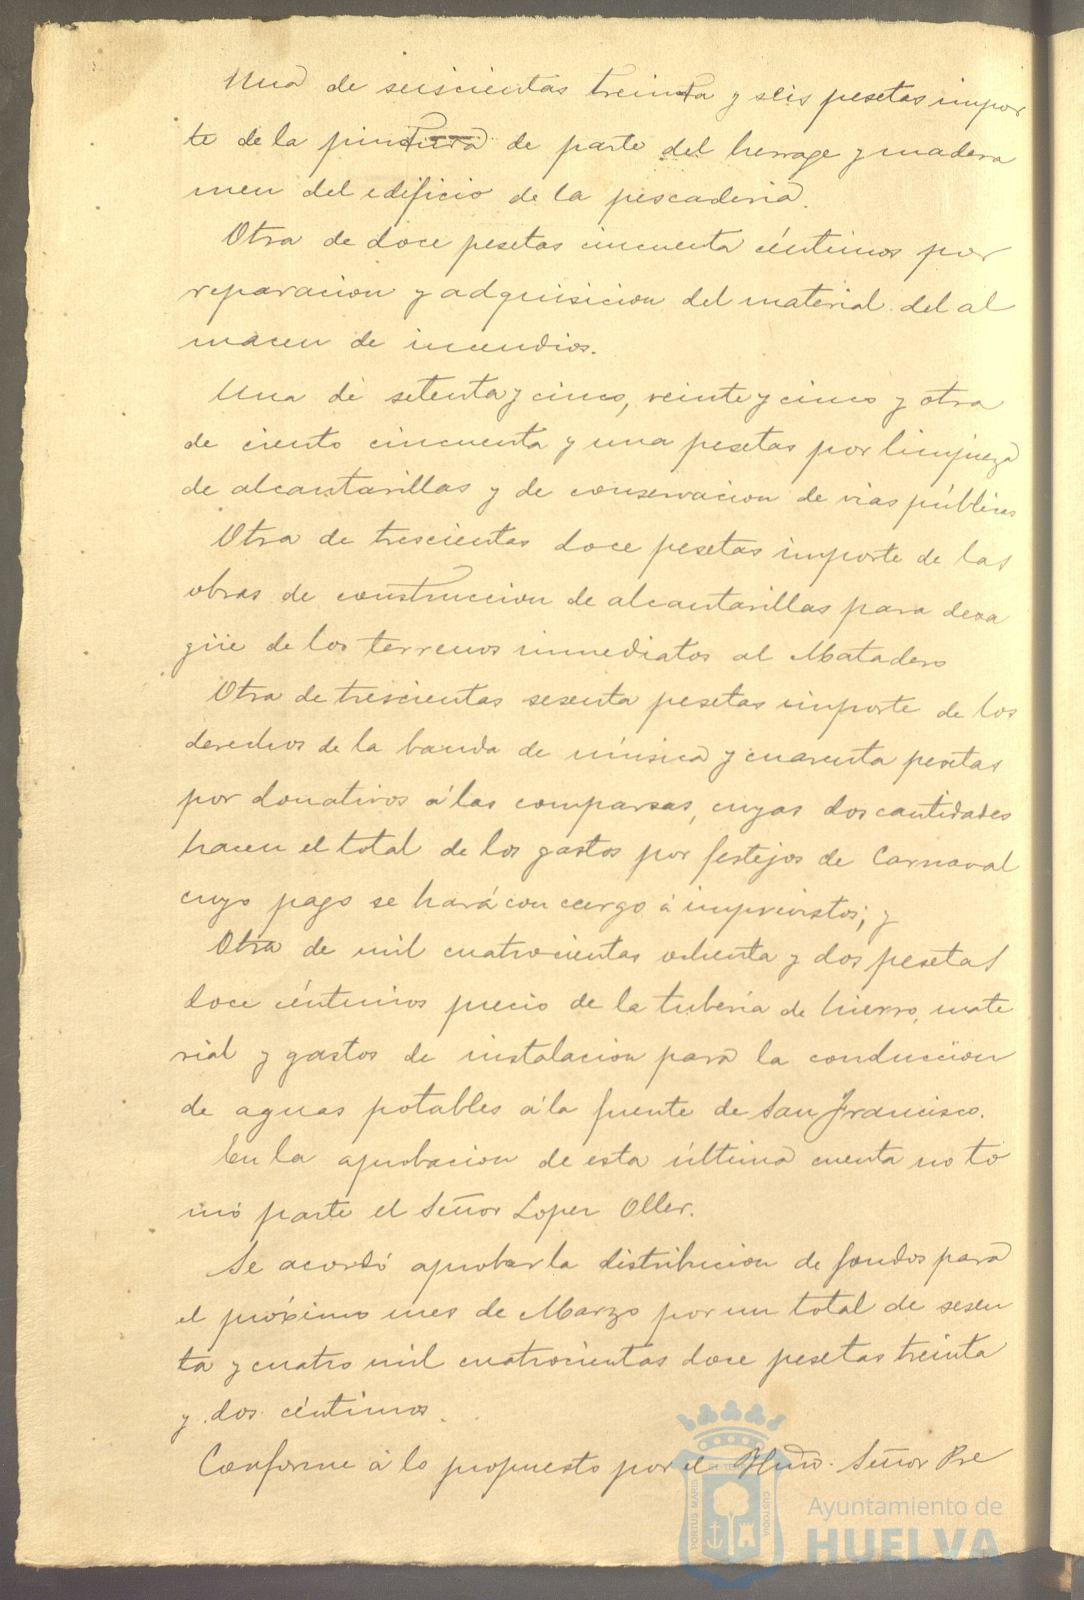 Una de seiscientas treinta y seis pesetas impor
te de la pintura de parte del herrage y madera
men del edificio de la pescaderia.
Otra de doce pesetas cincuenta céntimos por
reparacion y adquisicion del material del al
macen de incendios.
Una de setenta y cinco, veinte y cinco y otra
de ciento cincuenta y una pesetas por limpieza
de alcantarillas y de conservacion de vias públicas
Otra de trescientas doce pesetas importe de las
obras de construccion de alcantarillas para desa
güe de los terrenos inmediatos al Matadero
Otra de trescientas sesenta pesetas importe de los
derechos de la banda de música y cuarenta pesetas
por donativos á las comparsas, cuyas dos cantidades
hacen el total de los gastos por festejos de Carnaval
cuyo pago se hará con cargo á imprevistos; y
Otra de mil cuatrocientas ochenta y dos pesetas
doce céntimos precio de la tuberia de hierro, mate
rial y gastos de instalacion para la conduccion
de aguas potables á la fuente de San Francisco.
En la aprobacion de esta última cuenta no to
mó parte el Señor Lopez Oller.
Se acordó aprobar la distribucion de fondos para
el próximo mes de Marzo por un total de sesen
ta y cuatro mil cuatrocientas doce pesetas treinta
y dos céntimos.
Conforme á lo propuesto por el Señor Pre
PORTUS MARIS CUSTODIA
Ayuntamiento de
HUELVA